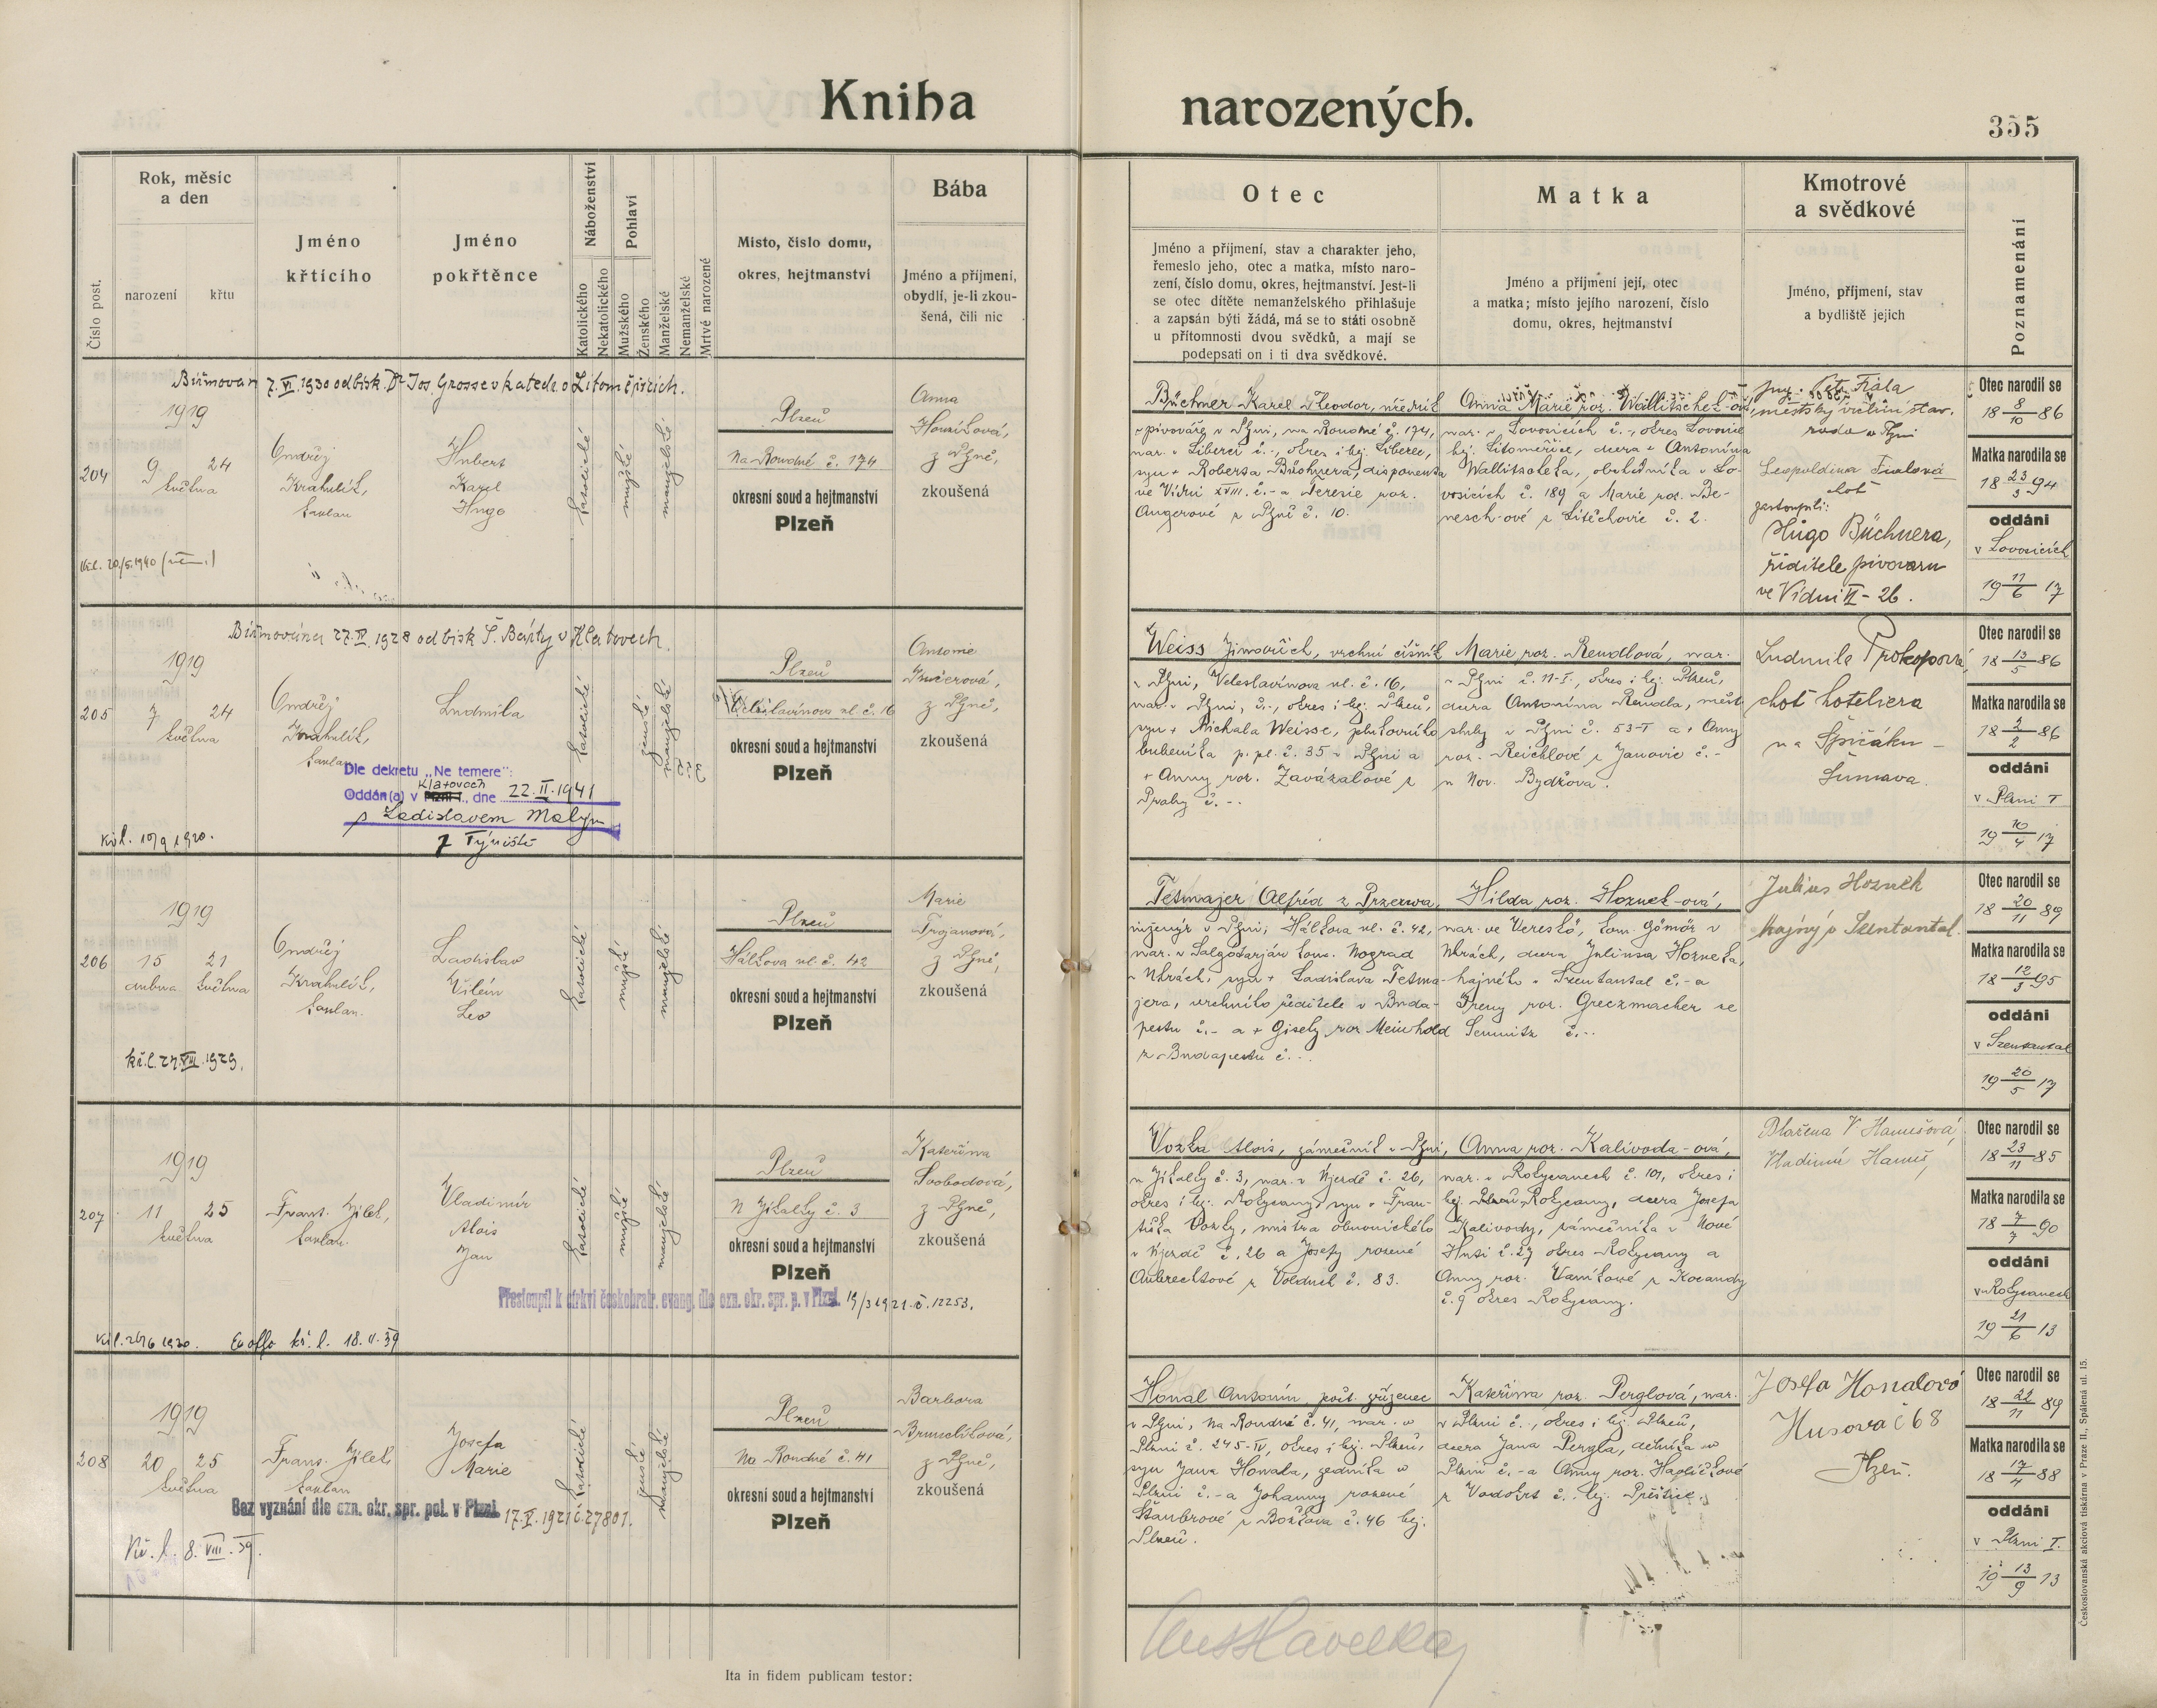 Kniha narozených.
355
Rok, měsíc
a den
Číslo post.
narození
křtu
Jméno
křtícího
Jméno
pokřtěnce
Náboženství
Katolického
Nekatolického
Pohlaví
Mužského
Ženského
Manželské
Nemanželské
Mrtvě narozené
Místo, číslo domu,
okres, hejtmanství
Bába
Jméno a příjmení,
obydlí, je-li zkou-
šená, čili nic
Otec
Jméno a příjmení, stav a charakter jeho,
řemeslo jeho, otec a matka, místo naro-
zení, číslo domu, okres, hejtmanství. Jest-li
se otec dítěte nemanželského přihlašuje
a zapsán býti žádá, má se to státi osobně
u přítomnosti dvou svědků, a mají se
podepsati on i ti dva svědkové.
Matka
Jméno a příjmení její, otec
a matka; místo jejího narození, číslo
domu, okres, hejtmanství
Kmotrové
a svědkové
Jméno, příjmení, stav
a bydliště jejich
Poznamenání
Biřmován 7.VI.1930 od bisk. Dr Jos. Grosse v katedr. v Litoměřicích.
1919
204
9 24
května
Ondřej
Krahulík,
kaplan
Hubert
Karel
Hugo
katolické
mužské
manželské
Plzeň
Na Roudné č. 174
okresní soud a hejtmanství
Plzeň
Anna
z Plzně,
zkoušená
Büchner Karel Theodor, úředník
v pivováře v Plzni, na Roudné č. 174,
nar. v Liberci č. -, okres i hej. Liberec,
syn + Roberta Büchnera, disponenta
ve Vídni XVIII. č. - a Terezie roz.
Angerové z Plzně č. 10.
Anna Marie roz. Wallitschek-ová,
nar. v Lovosicích č. -, okres Lovosice
hej. Litoměřice, dcera + Antonína
Wallitschka, obchodníka v Lo-
vosicích č. 189 a Marie roz. Be-
nesch-ové z Litěchovic č. 2.
Ing. Petr Fiala
městský vrchní stav.
rada v Plzni
Leopoldina Fialová
choť
zastoupili:
Hugo Büchnera,
ředitele pivovaru
ve Vídni VI - 26.
Otec narodil se
18 8/10 86
Matka narodila se
18 23/3 94
oddáni
v Lovosicích
19 11/6 17
Biřmována 27.IV.1928 od bisk Š. Bárty v Klatovech.
1919
205
7 24
května
Ondřej
Krahulík,
kaplan
Ludmila
katolické
ženské
manželské
Plzeň
Veleslavínova ul. č. 16
okresní soud a hejtmanství
Plzeň
Antonie
z Plzně,
zkoušená
Dle dekretu „Ne temere“:
Klatovech
Oddán(a) v Plzni I., dne 22.II.1941
s Ladislavem Malým
z Týniště
Weiss Jindřich, vrchní číšník
v Plzni, Veleslavínova ul. č. 16,
nar. v Plzni, č. -, okres i hej. Plzeň,
syn + Michala Weisse, plukovního
bubeníka p. pl. č. 35 v Plzni a
+ Anny roz. Zavázalové z
Prahy č. -.
Marie roz. Rendlová, nar.
v Plzni č. 11-I., okres i hej. Plzeň,
dcera Antonína Rendla, měst.
sluhy v Plzni č. 53-I a + Anny
roz. Reichlové z Janovic č. -
u Nov. Bydžova.
Ludmila Prokopová,
choť hoteliera
na Špičáku -
Šumava.
Otec narodil se
18 13/5 86
Matka narodila se
18 2/2 86
oddáni
v Plzni I
19 10/4 17
1919
206
15 21
dubna května
Ondřej
Krahulík,
kaplan.
Ladislav
Vilém
Leo
katolické
mužské
manželské
Plzeň
Hálkova ul. č. 42
okresní soud a hejtmanství
Plzeň
Marie
Trojanová,
z Plzně,
zkoušená
kř.l. 27.VIII.1929.
Tetmajer Alfréd z Przerwa,
inženýr v Plzni, Hálkova ul. č. 42,
nar. v Salgótarján kom. Nograd
v Uhrách, syn + Ladislava Tetma-
jera, vrchního ředitele v Buda-
pešti č. - a + Gisely roz. Meinhold
z Budapešti č. -.
Hilda roz. Hoznek-ová,
nar. ve Vereskö, kom. Gömör v
Uhrách, dcera Juliusa Hozneka,
hajného v Szentantal č. - a
Ireny roz. Greczmacher ze
Semnitz č. -.
Julius Hoznek
hajný v Szentantal.
Otec narodil se
18 20/11 89
Matka narodila se
18 12/3 95
oddáni
v Szentantal
19 20/5 17
1919
207
11 25
května
Frant. Jílek,
kaplan.
Vladimír
Alois
Jan
katolické
mužské
manželské
Plzeň
U Jíkalky č. 3
okresní soud a hejtmanství
Plzeň
Kateřina
Svobodová,
z Plzně,
zkoušená
Přestoupil k církvi českobratr. evang. dle ozn. okr. spr. p. v Plzni 19/3 1921 č. 12253.
kř. l. 18.V.39
Vozka Alois, zámečník v Plzni,
u Jíkalky č. 3, nar. v Kjezdě č. 26,
okres i hej. Rokycany, syn + Fran-
tiška Vozky, mistra obuvnického
v Kjezdě č. 26 a Josefy rozené
Aubrechtové z Volduch č. 83.
Anna roz. Kalivoda-ová,
nar. v Rokycanech č. 101, okres i
hej. Rokycany, dcera Josefa
Kalivody, zámečníka v Nové
Huti č. 27 okres Rokycany a
Anny roz. Vaníkové z Kocandy
č. 9 okres Rokycany.
Blažena V. Hanušová,
Vladimír Hanuš,
Otec narodil se
18 23/11 85
Matka narodila se
18 7/7 90
oddáni
v Rokycanech
19 21/6 13
1919
208
20 25
května
Frant. Jílek,
kaplan
Josefa
Marie
katolické
ženské
manželské
Plzeň
Na Roudné č. 41
okresní soud a hejtmanství
Plzeň
Barbora
z Plzně,
zkoušená
Bez vyznání dle ozn. okr. spr. pol. v Plzni 17.V.1921 č. 27801.
Kř. l. 8.VIII.39.
Honal Antonín, pošt. zřízenec
v Plzni, na Roudné č. 41, nar. v
Plzni č. 245-IV, okres i hej. Plzeň,
syn Jana Honala, zedníka v
Plzni č. - a Johanny rozené
Štaubrové z Božkova č. 46 hej.
Plzeň.
Kateřina roz. Perglová, nar.
v Plzni č. -, okres i hej. Plzeň,
dcera Jana Pergla, dělníka v
Plzni č. - a Anny roz. Havlíčkové
z Vodokrt č. - hej. Přeštice.
Josefa Honalová
Husova č 68
Plzeň.
Otec narodil se
18 22/11 89
Matka narodila se
18 17/4 88
oddáni
v Plzni I.
19 13/9 13
Ita in fidem publicam testor:
Českoslovanská akciová tiskárna v Praze II., Spálená ul. 15.